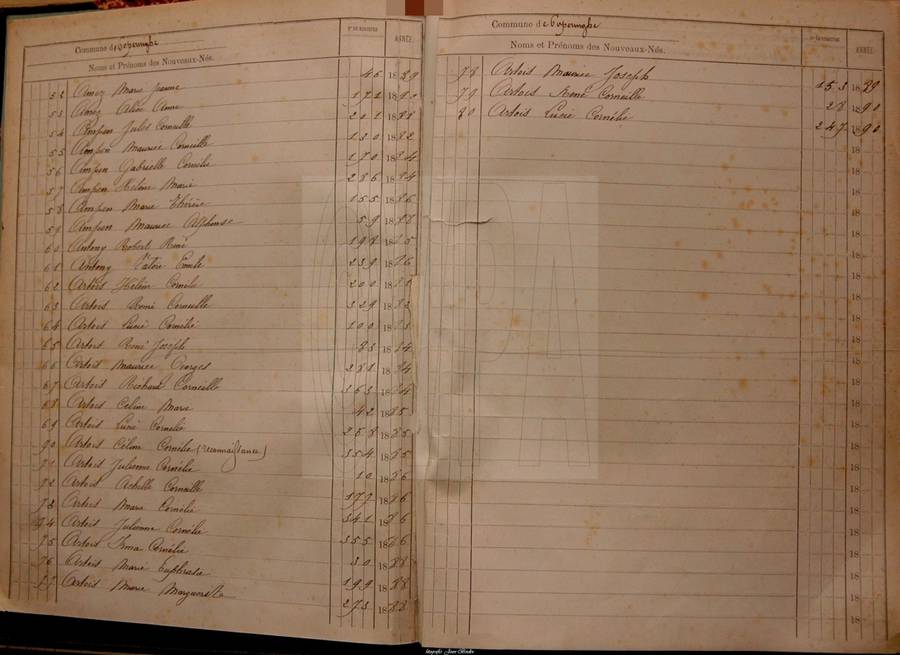 Commune de Poperinghe
N° DU REGISTRE
ANNÉE
Noms et Prénoms des Nouveaux-Nés.
52 Marie Jeanne 46 1889
53 Aline Anne 171 18
54 Ampen Jules Corneille 211 1881
55 Ampen Maurice Corneille 130 1882
56 Ampen Gabrielle Cornélie 170 1884
57 Ampen Hélène Marie 286 1884
58 Ampen Marie Thérèse 155 1886
59 Ampen Maurice Alphonse 59 1888
60 Antony Robert René 198 1885
61 Antony Valère Emile 239 1886
62 Artois Hélène Cornélie 200 18
63 Artois René Corneille 329 1883
64 Artois Lucie Cornélie 100 1883
65 Artois René Joseph 83 1884
66 Artois Maurice Georges 281 1884
67 Artois Corneille 363 1884
68 Artois Celine Marie 42 1885
69 Artois Lucie Cornélie 258 1885
70 Artois Céline Cornélie (reconnaissance) 354 1885
71 Artois Julienne Cornélie 10 1886
72 Artois Achille Corneille 177 1886
73 Artois Marie Cornélie 341 1886
74 Artois Julienne Cornélie 355 1886
75 Artois Irma Cornélie 30 1888
76 Artois Marie Euphrasie 199 1888
77 Artois Marie Marguerite 273 1888
Commune de Poperinghe
N° DU REGISTRE
ANNÉE
Noms et Prénoms des Nouveaux-Nés.
78 Artois Maurice Joseph 153 1889
79 Artois René Corneille 28 1890
80 Artois Lucie Cornélie 247 1890
18
18
18
18
18
18
18
18
18
18
18
18
18
18
18
18
18
18
18
18
18
18
18